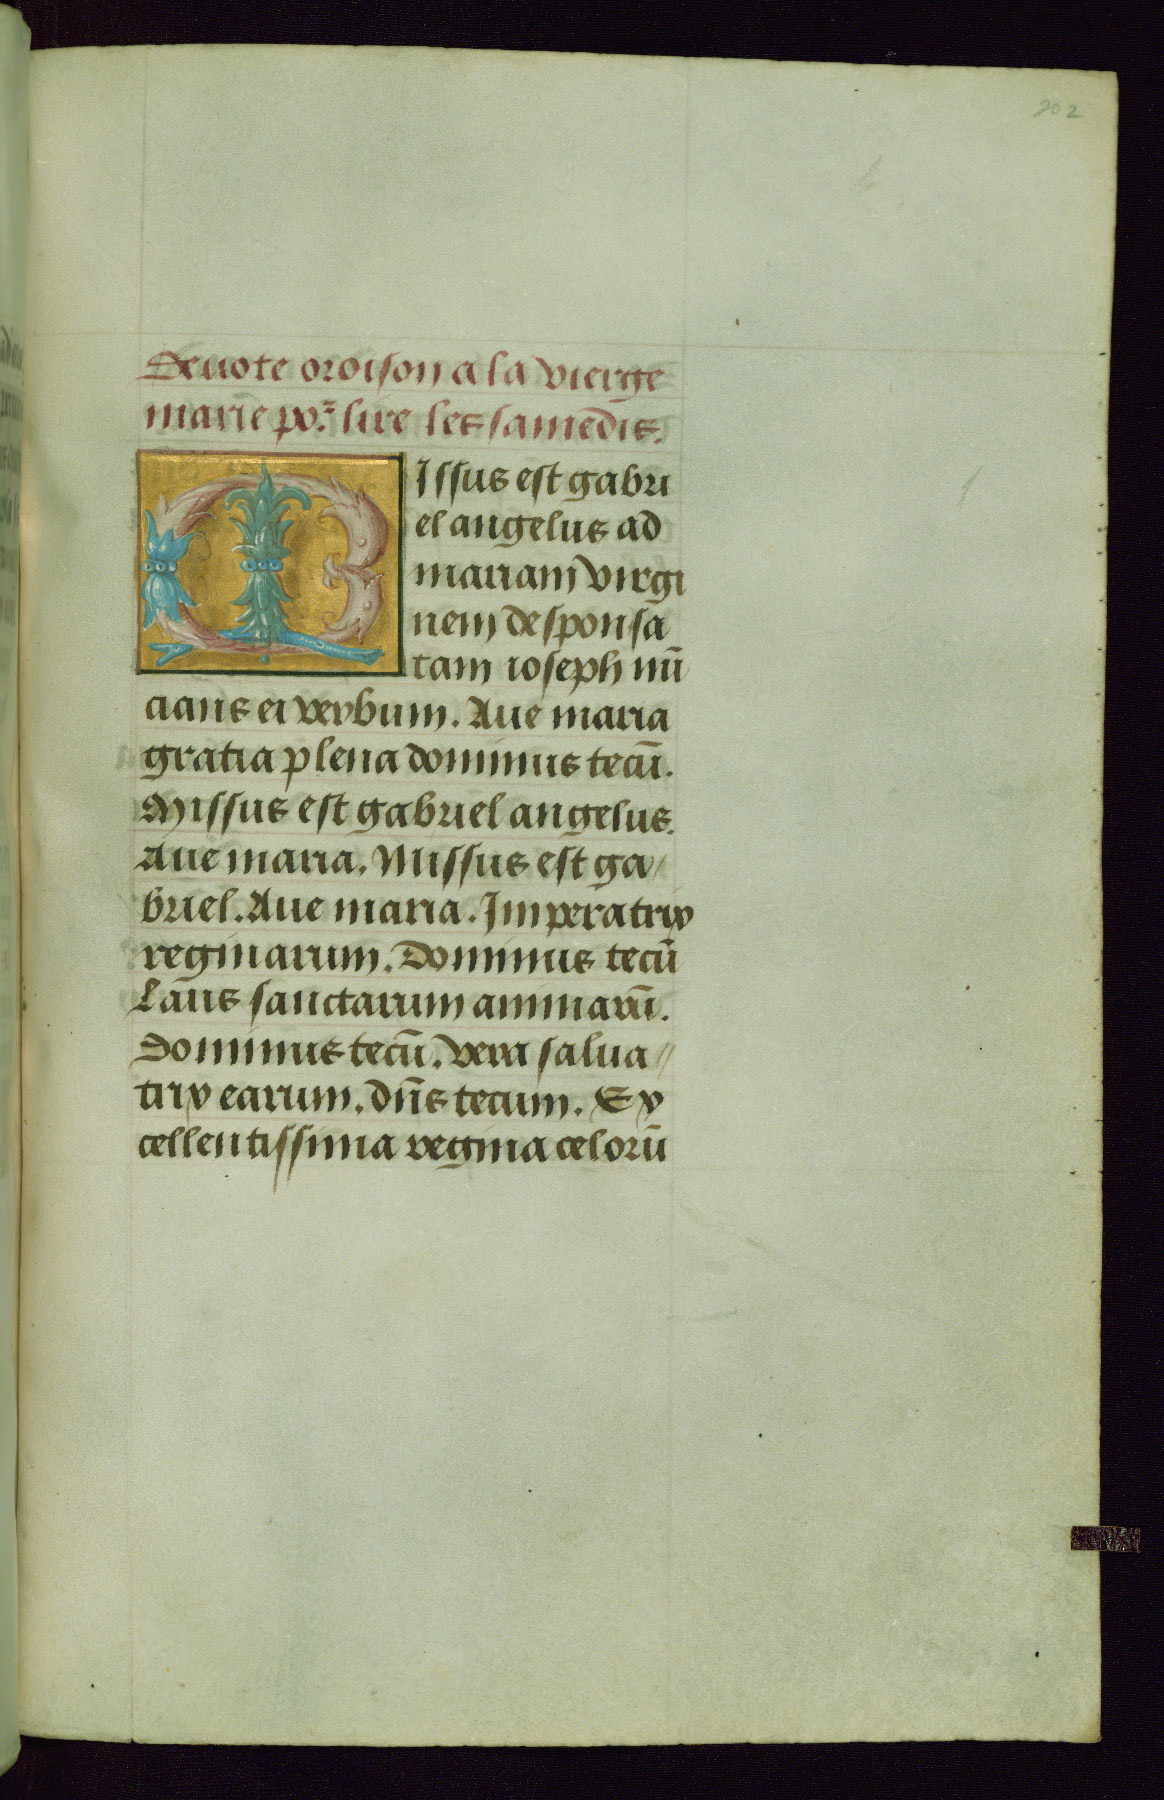 202
Deuote oroison a la vierge
marie po᷑ lire les samedis.
MIssus est gabri
el angelus ad
mariam virgi
nem desponsa
tam ioseph nū
cians ei verbum. Aue maria
gratia plena dominus tecū.
Missus est gabriel angelus.
Aue maria. Missus est ga/
briel. Aue maria. Imperatrix
reginarum. Dominus tecū
Laus sanctarum animarū.
Dominus tecū. vera salua//
trix earum. dn̄s tecum. Ex
cellentissima regina celorū